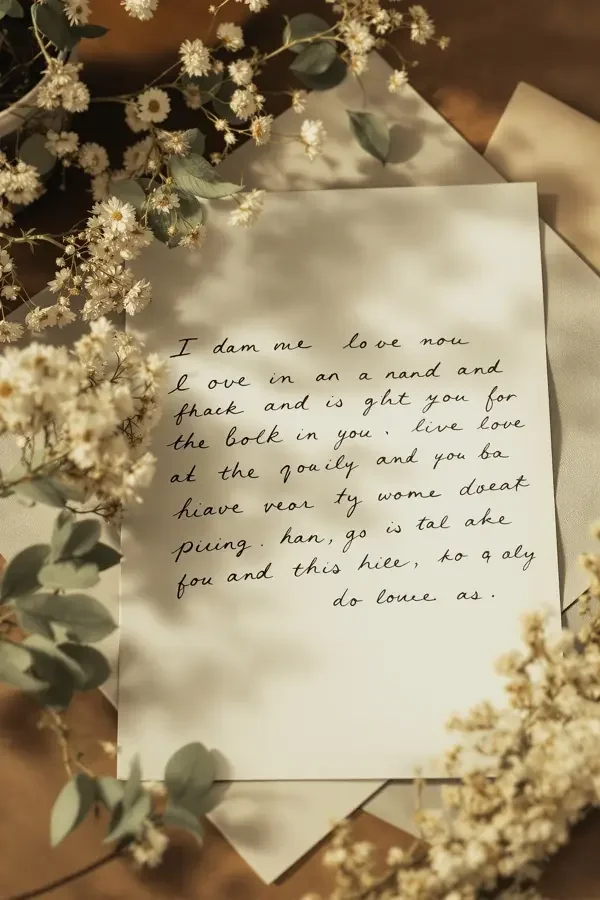 I dam me love nou
l ove in an a nand and
fhack and is ght you for
the bolk in you. live love
at the qouily and you ba
hiave veor ty wome doeat
piuing. han, go is tal ake
fou and this hile, ko q aly
do louee as.